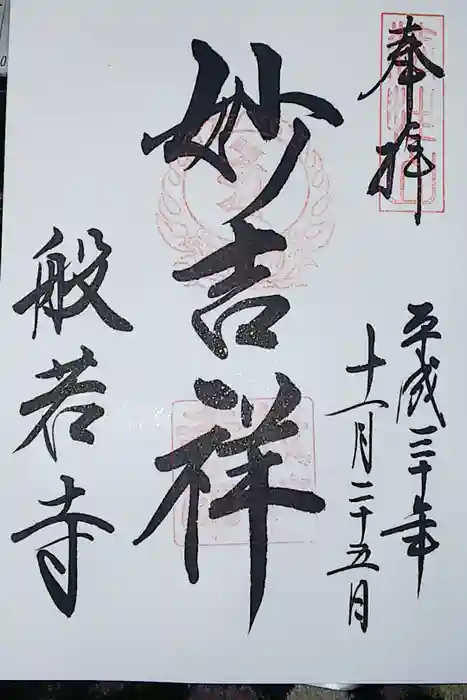 奉拝
平成三十年
十一月二十五日
妙吉祥
般若寺